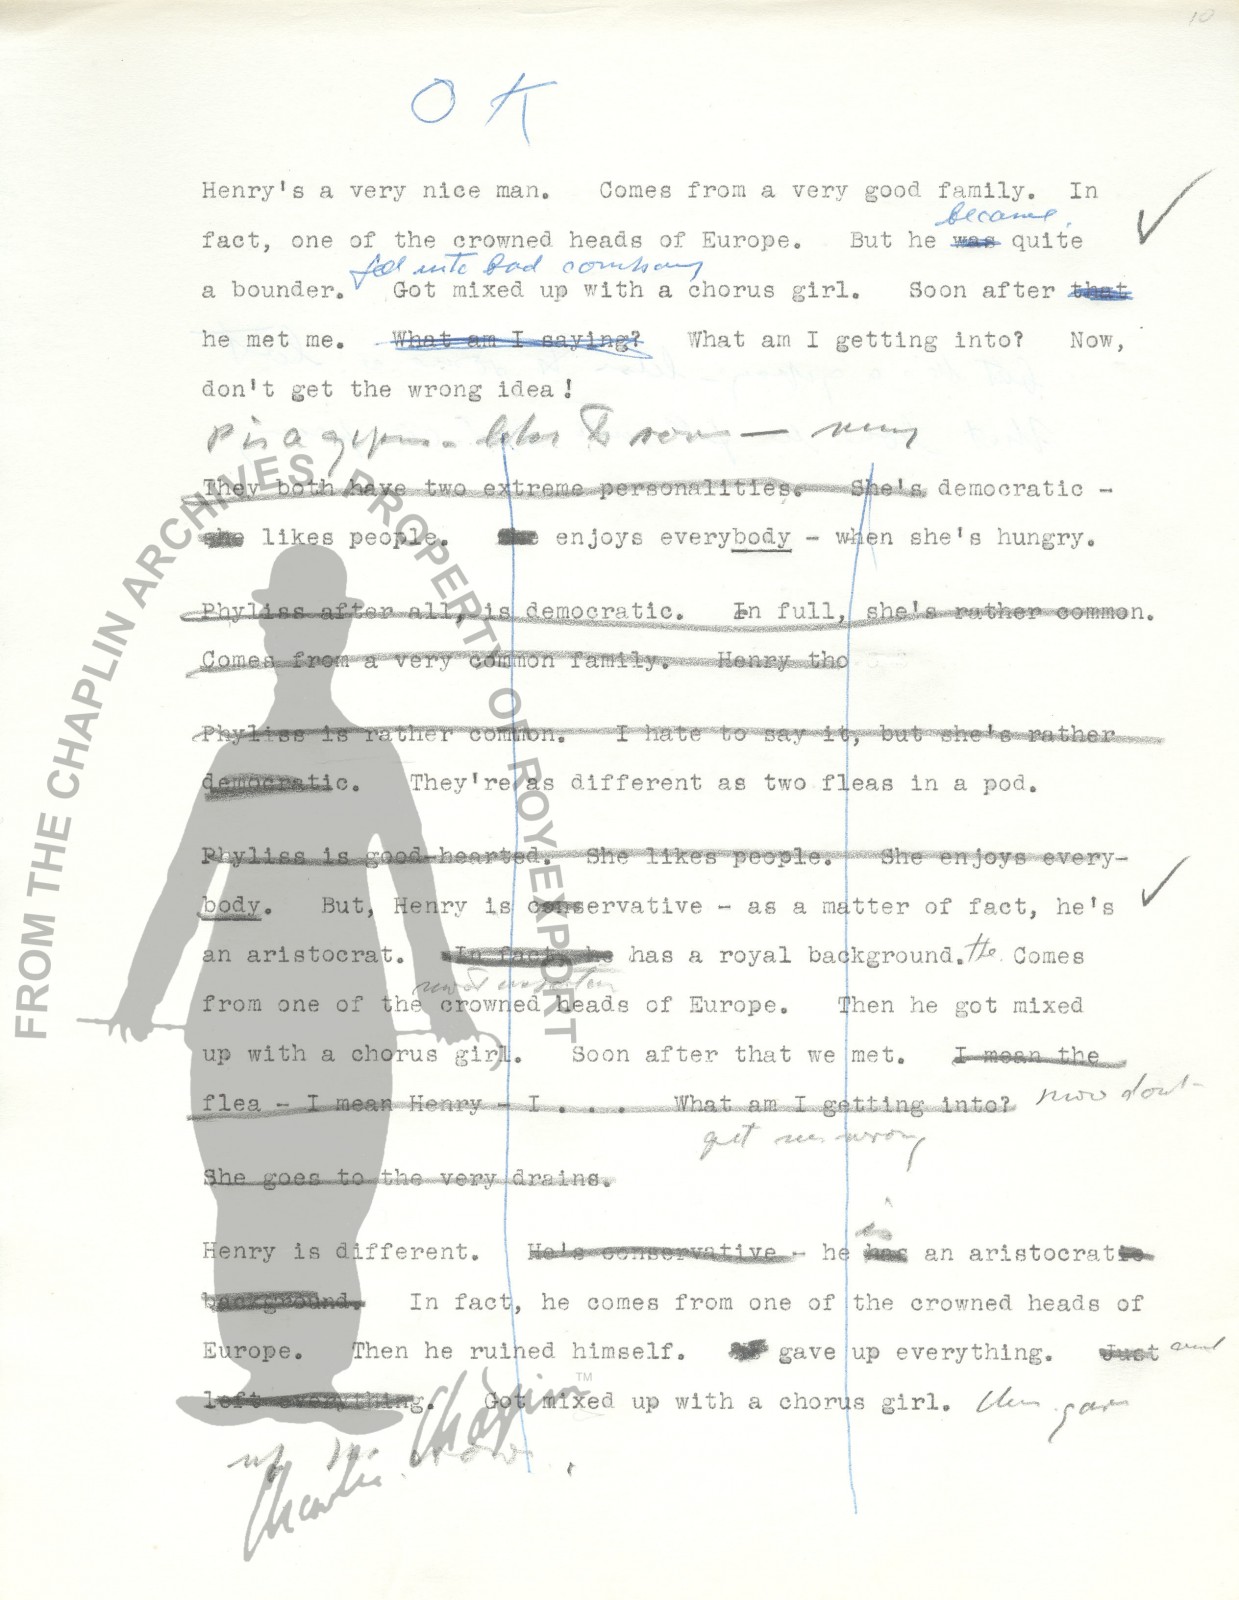 10
O K
Henry's a very nice man. Comes from a very good family. In
became
fact, one of the crowned heads of Europe. But he was quite
fell into bad company
a bounder. Got mixed up with a chorus girl. Soon after that
he met me. What am I saying? What am I getting into? Now,
don't get the wrong idea!
P is a gypsy -
They both have two extreme personalities. She's democratic -
she likes people. She enjoys everybody - when she's hungry.
Phyliss after all, is democratic. In full, she's rather common.
Comes from a very common family. Henry tho
Phyliss is rather common. I hate to say it, but she's rather
democratic. They're as different as two fleas in a pod.
Phyliss is good-hearted. She likes people. She enjoys every-
body. But, Henry is conservative - as a matter of fact, he's
an aristocrat. In fact, he has a royal background. the Comes
from one of the crowned heads of Europe. Then he got mixed
up with a chorus girl. Soon after that we met. I mean the
flea - I mean Henry - I . . . What am I getting into? now dont
get me wrong
She goes to the very drains.
is
Henry is different. He's conservative - he has an aristocratic
background. In fact, he comes from one of the crowned heads of
Europe. Then he ruined himself. gave up everything. Just and
left everything. Got mixed up with a chorus girl. then gave
up
Charlie Chaplin
TM
FROM THE CHAPLIN ARCHIVES PROPERTY OF ROY EXPORT